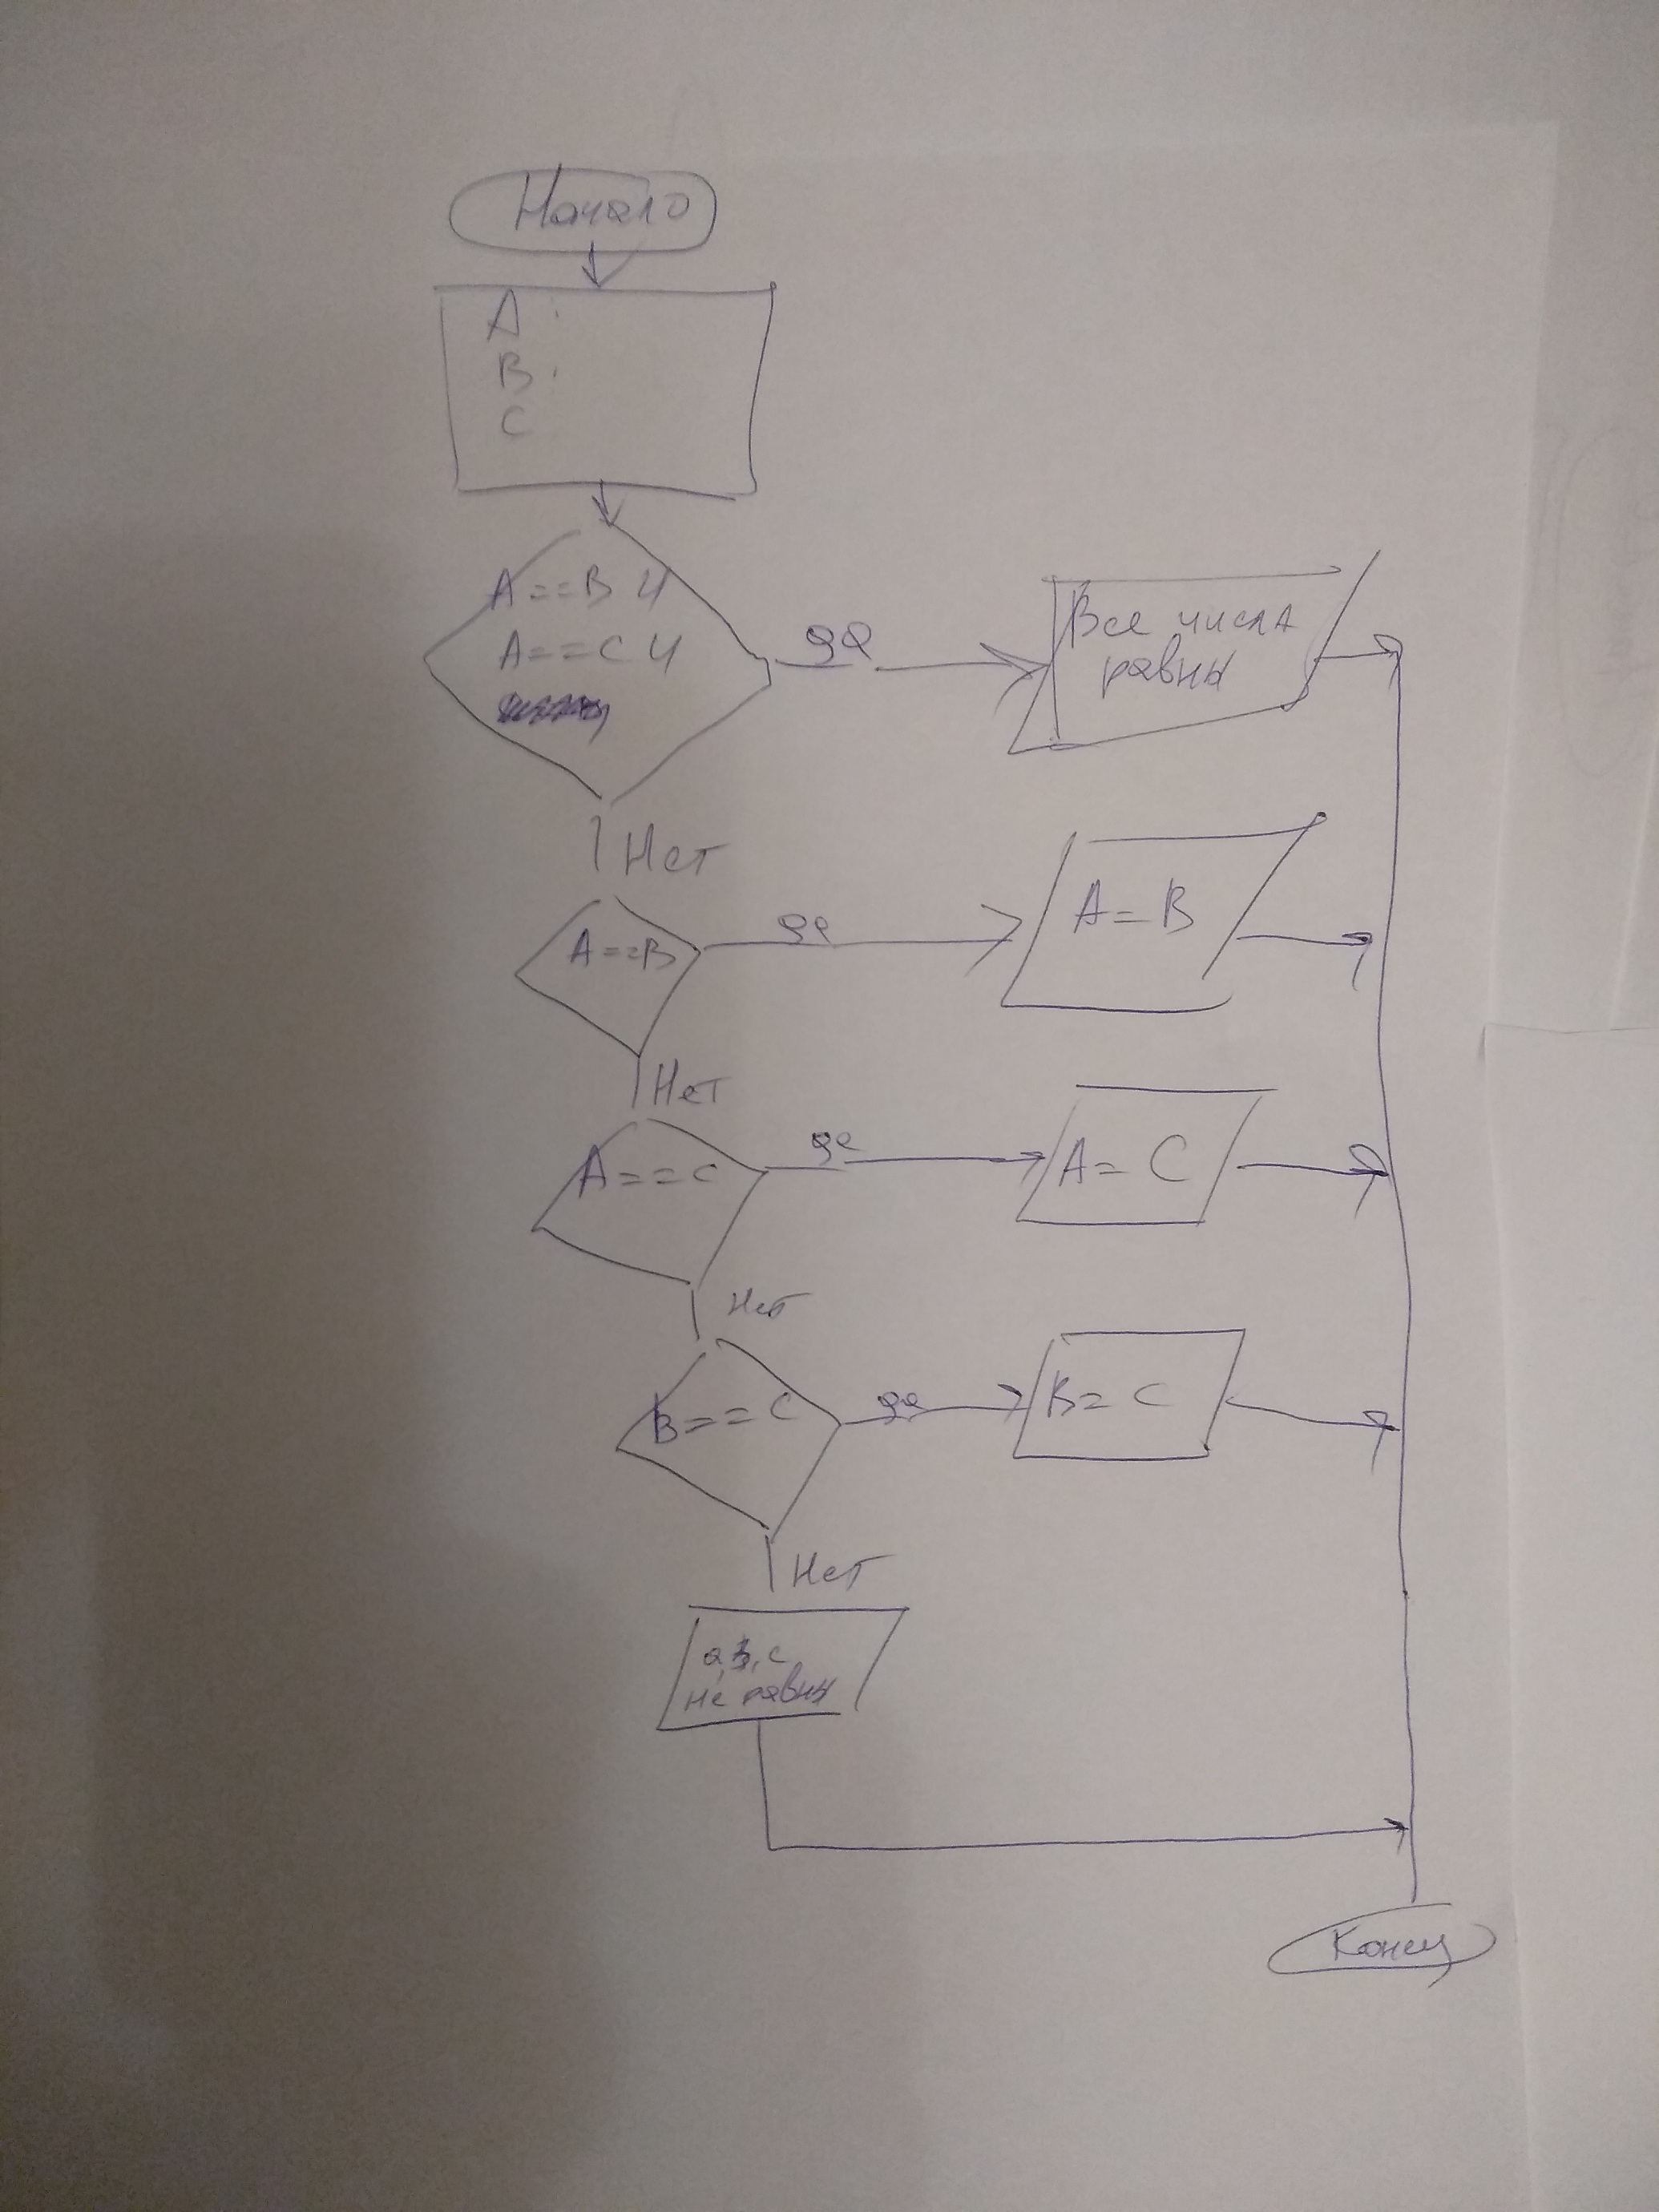 Начало
A:
B:
C
A==B И
A==C И
да
Все числа
равны
Нет
A==B
да
A=B
Нет
A==C
да
A=C
Нет
B==C
да
B=C
Нет
a, b, c
не равны
Конец